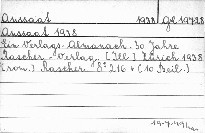 Aussaat 1938 
Aussaat 1938
Ein Verlags-Almanach. 30 Jahre
Rascher-Verlag. [Ill.] Zürich 1938
(: Rascher. 8° 216 + (10 Beil.)
19.7.49